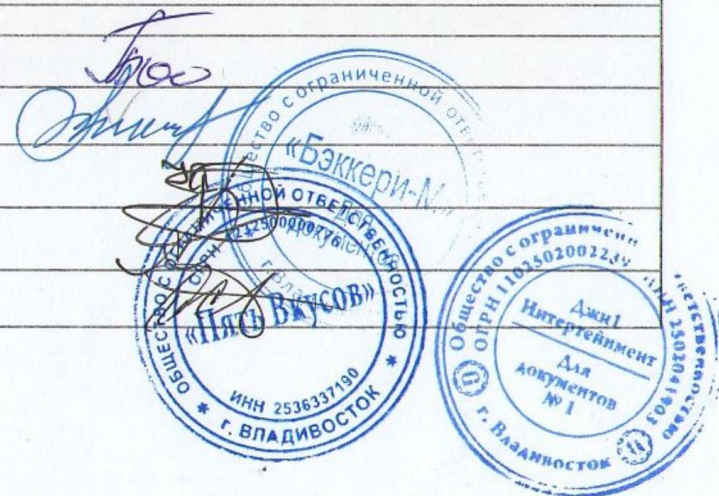 Общество с ограниченной
«Бэккери-М»
Для
документов
ОБЩЕСТВО С ОГРАНИЧЕННОЙ ОТВЕТСТВЕННОСТЬЮ
ОГРН
«Пять Вкусов»
ИНН 2536337190
* г. ВЛАДИВОСТОК *
Общество с ограниченн
ветственностью
ОГРН 110250200223
ИНН 2502041903
Джи1
Интертейнмент
Для
документов
№ 1
г. Владивосток